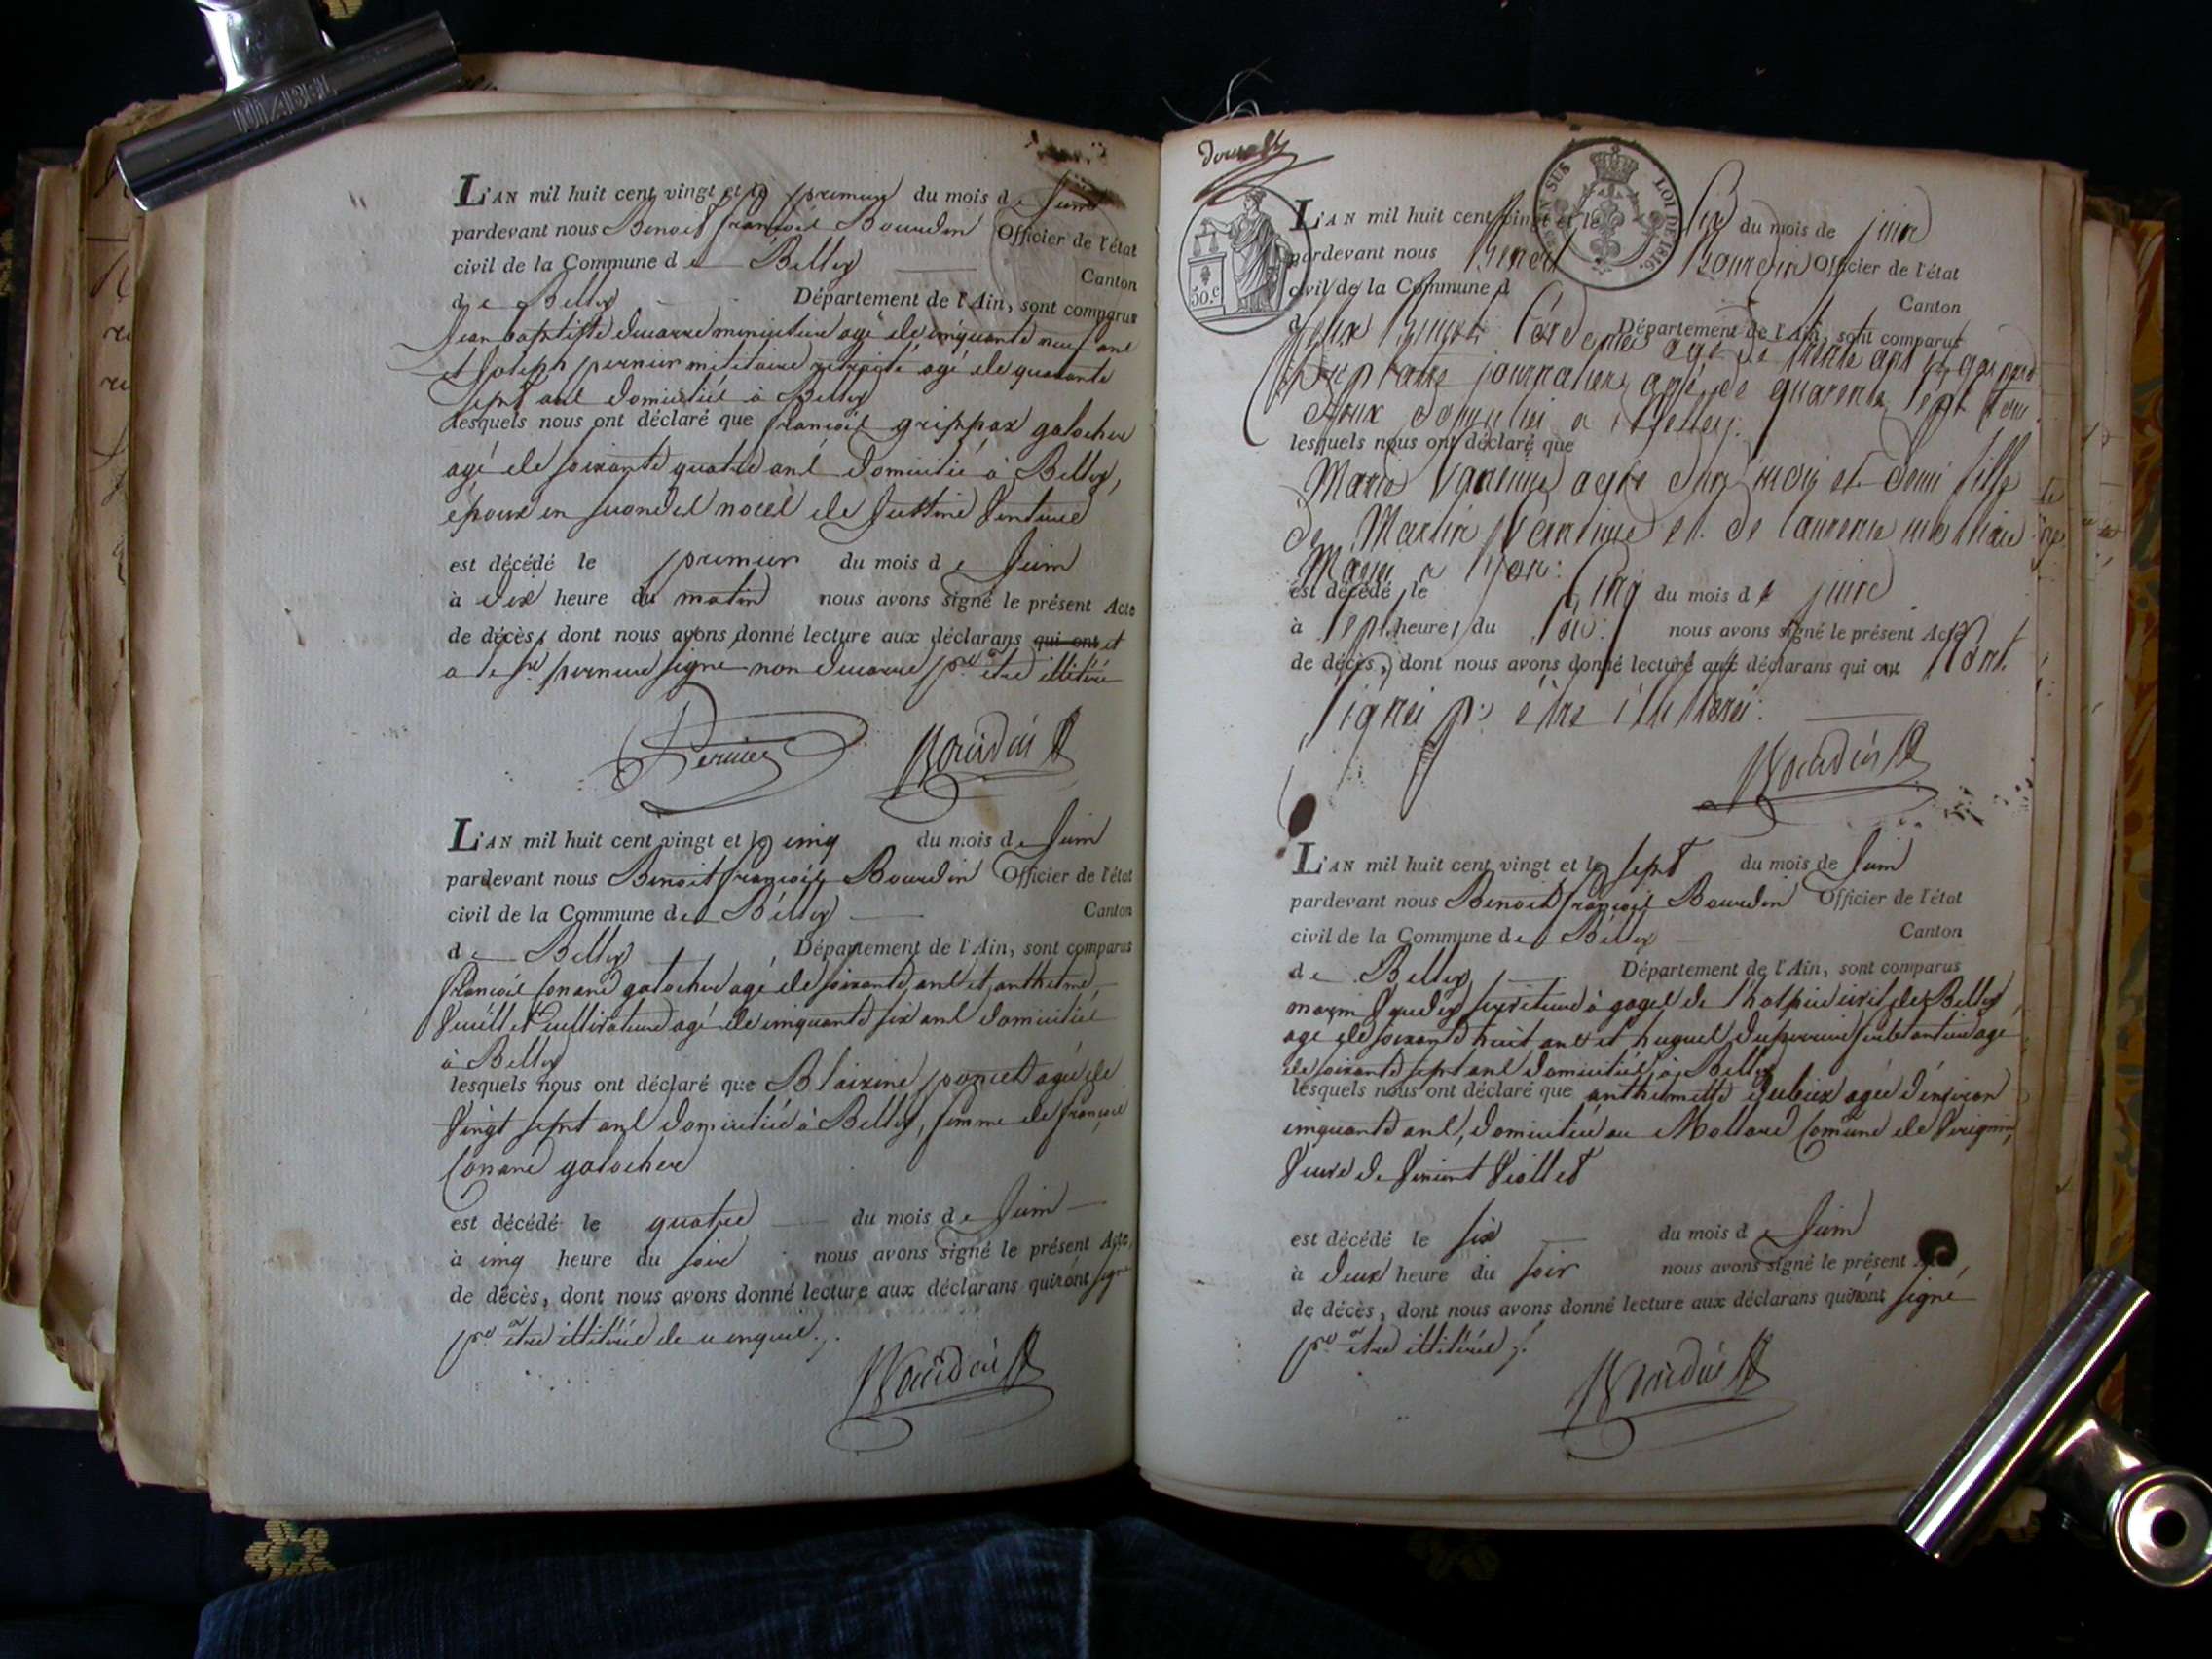 L'AN mil huit cent vingt et le premier du mois de Juin
pardevant nous Benoit françois Bourdin Officier de l'état
civil de la Commune de Belley Canton
de Belley Département de l'Ain, sont comparus
Jean baptiste ducarre agé de cinquante neuf ans
et Joseph pernier militaire retraité agé de quarante
sept ans domiciliés à Belley
lesquels nous ont déclaré que françois grippax galocher
agé de soixante quatre ans domicilié à Belley,
époux en secondes noces de Justine
est décédé le premier du mois de Juin
à dix heure du matin nous avons signé le présent Acte
de décès, dont nous avons donné lecture aux déclarans qui ont et
a le sr. pernier signé non ducarre pr. être illitéré
Pernier Bourdin
L'AN mil huit cent vingt et le cinq du mois de Juin
pardevant nous Benoit françois Bourdin Officier de l'état
civil de la Commune de Belley Canton
de Belley Département de l'Ain, sont comparus
françois Conand galocher agé de soixante ans et anthelme
cultivateur agé de cinquante six ans domiciliés
à Belley
lesquels nous ont déclaré que Blaizine poncet agée de
vingt sept ans domiciliée à Belley, femme de françois
Conand galocher
est décédé le quatre du mois de Juin
à cinq heure du soir nous avons signé le présent Acte,
de décès, dont nous avons donné lecture aux déclarans qui n'ont signé
pr. être illitérés de ce enquis.
Bourdin
50.c
SUS LOI DE 1816.
L'AN mil huit cent vingt et le Six du mois de juin
pardevant nous Benoit Bourdin Officier de l'état
civil de la Commune d
Canton
d Département de l'Ain, sont comparus
agé de trente ans et
journalier agé de quarente sept tous
deux domicilies a Belley.
lesquels nous ont déclaré que
Marie Varenne agée d'un mois et demi fille
de Martin Varenne et de laurence
Mariés a Lyon.
est décédé le Cinq du mois de juin
à Sept heure du Soir. nous avons signé le présent Acte
de décès, dont nous avons donné lecture aux déclarans qui ont N'ont
Signés pr. être illitérés.
Bourdin
L'AN mil huit cent vingt et le sept du mois de Juin
pardevant nous Benoit françois Bourdin Officier de l'état
civil de la Commune de Belley Canton
de Belley Département de l'Ain, sont comparus
serviteur à gages de l'hospice civil de Belley
agé de soixante huit ans et hugues duperrier agé
de soixante sept ans domiciliés à Belley
lesquels nous ont déclaré que anthelmette agée d'environ
cinquante ans, domiciliée au Mollard Comune de Virignin,
veuve de Vincent Viollet
est décédé le six du mois de Juin
à deux heure du soir nous avons signé le présent
de décès, dont nous avons donné lecture aux déclarans qui n'ont signé
pr. être illitérés.
Bourdin